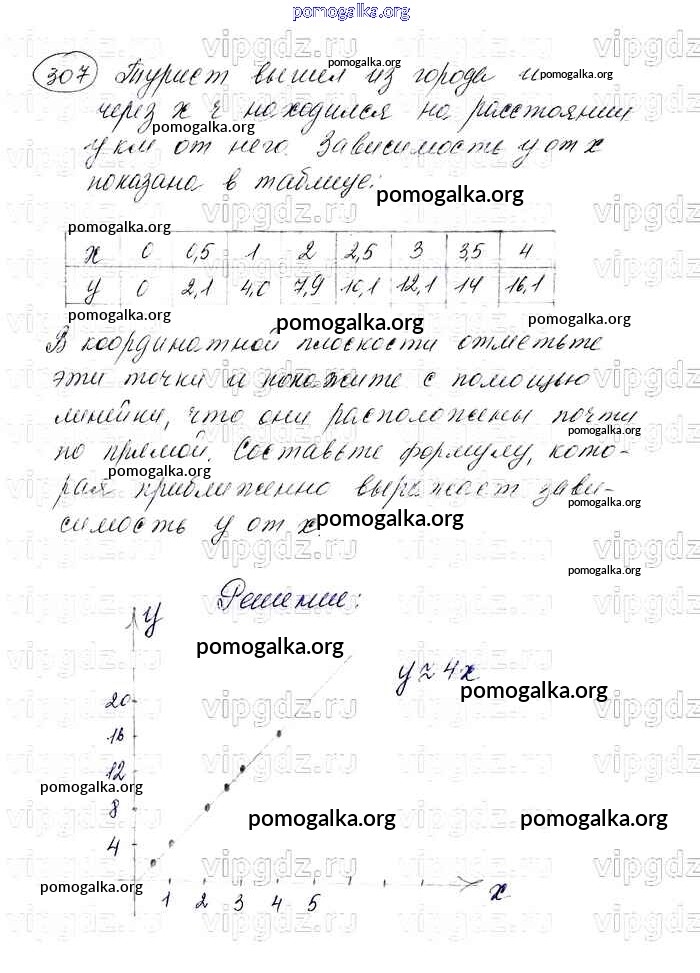 pomogalka.org
307 Турист вышел из города и
через x ч находился на расстоянии
y км от него. Зависимость y от x
показана в таблице:
x 0 0,5 1 2 2,5 3 3,5 4
y 0 2,1 4,0 7,9 10,1 12,1 14 16,1
В координатной плоскости отметьте
эти точки и покажите с помощью
линейки, что они расположены почти
по прямой. Составьте формулу, кото-
рая приближенно выражает зави-
симость y от x.
Решение:
y
y ≈ 4x
20
16
12
8
4
1 2 3 4 5 x
pomogalka.org
vipgdz.ru